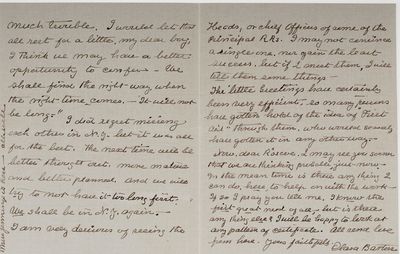 much terrible. I would let that
all rest for a little, my dear boy,
I think we may have a better
opportunity to confer – We
shall find the right way when
the right time comes. – It will not
be long. – I did regret missing
each other in N.Y. but it was all
for the best. The next time will be
better thought out, more mature
and better planned, and we will
try to not have it too long first.
We shall be in N.Y. again. –
I am very desirous of seeing the
Heads, or chief Officers of some of the
Principal R.Rs. I may not convince
a single one, nor gain the least
success, but if I meet them, I will
tell them some things –
The letter Greetings have certainly
been very efficient, so many persons
have gotten hold of the idea of "First
Aid" through them, who would scarcely
have gotten it in any other way. –
Now, dear Roscoe, I may not know
what we are thinking probably just now –
In the mean time is there any thing I
can do, here to help on with the work –
If so I pray you tell me, I know the
first great need of all – but is there
any thing else? I will be happy to look at
any pattern of certificate. All send love
from here. Yours faithfully
Clara Barton